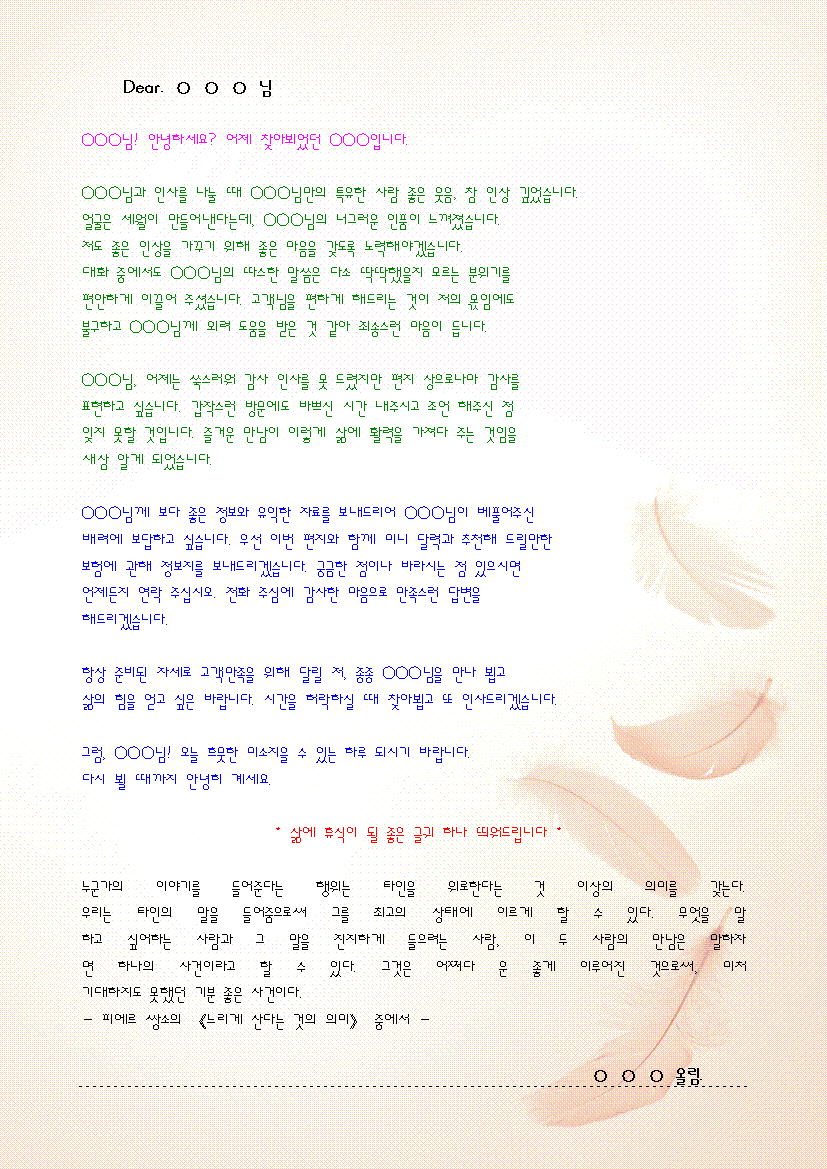 Dear. ○ ○ ○ 님
○○○님! 안녕하세요? 어제 찾아뵈었던 ○○○입니다.
○○○님과 인사를 나눌 때 ○○○님만의 특유한 사람 좋은 웃음, 참 인상 깊었습니다.
얼굴은 세월이 만들어낸다는데, ○○○님의 너그러운 인품이 느껴졌습니다.
저도 좋은 인상을 가꾸기 위해 좋은 마음을 갖도록 노력해야겠습니다.
대화 중에서도 ○○○님의 따스한 말씀은 다소 딱딱했을지 모르는 분위기를
편안하게 이끌어 주셨습니다. 고객님을 편하게 해드리는 것이 저의 몫임에도
불구하고 ○○○님께 외려 도움을 받은 것 같아 죄송스런 마음이 듭니다.
○○○님, 어제는 쑥스러워 감사 인사를 못 드렸지만 편지 상으로나마 감사를
표현하고 싶습니다. 갑작스런 방문에도 바쁘신 시간 내주시고 조언 해주신 점
잊지 못할 것입니다. 즐거운 만남이 이렇게 삶에 활력을 가져다 주는 것임을
새삼 알게 되었습니다.
○○○님께 보다 좋은 정보와 유익한 자료를 보내드리어 ○○○님이 베풀어주신
배려에 보답하고 싶습니다. 우선 이번 편지와 함께 미니 달력과 추천해 드릴만한
보험에 관해 정보지를 보내드리겠습니다. 궁금한 점이나 바라시는 점 있으시면
언제든지 연락 주십시오. 전화 주심에 감사한 마음으로 만족스런 답변을
해드리겠습니다.
항상 준비된 자세로 고객만족을 위해 달릴 저, 종종 ○○○님을 만나 뵙고
삶의 힘을 얻고 싶은 바랍니다. 시간을 허락하실 때 찾아뵙고 또 인사드리겠습니다.
그럼, ○○○님! 오늘 흐뭇한 미소지을 수 있는 하루 되시기 바랍니다.
다시 뵐 때까지 안녕히 계세요.
* 삶에 휴식이 될 좋은 글귀 하나 띄워드립니다 *
누군가의 이야기를 들어준다는 행위는 타인을 위로한다는 것 이상의 의미를 갖는다.
우리는 타인의 말을 들어줌으로써 그를 최고의 상태에 이르게 할 수 있다. 무엇을 말
하고 싶어하는 사람과 그 말을 진지하게 들으려는 사람, 이 두 사람의 만남은 말하자
면 하나의 사건이라고 할 수 있다. 그것은 어쩌다 운 좋게 이루어진 것으로써, 미처
기대하지도 못했던 기분 좋은 사건이다.
- 피에르 쌍소의 《느리게 산다는 것의 의미》 중에서 -
○ ○ ○ 올림.